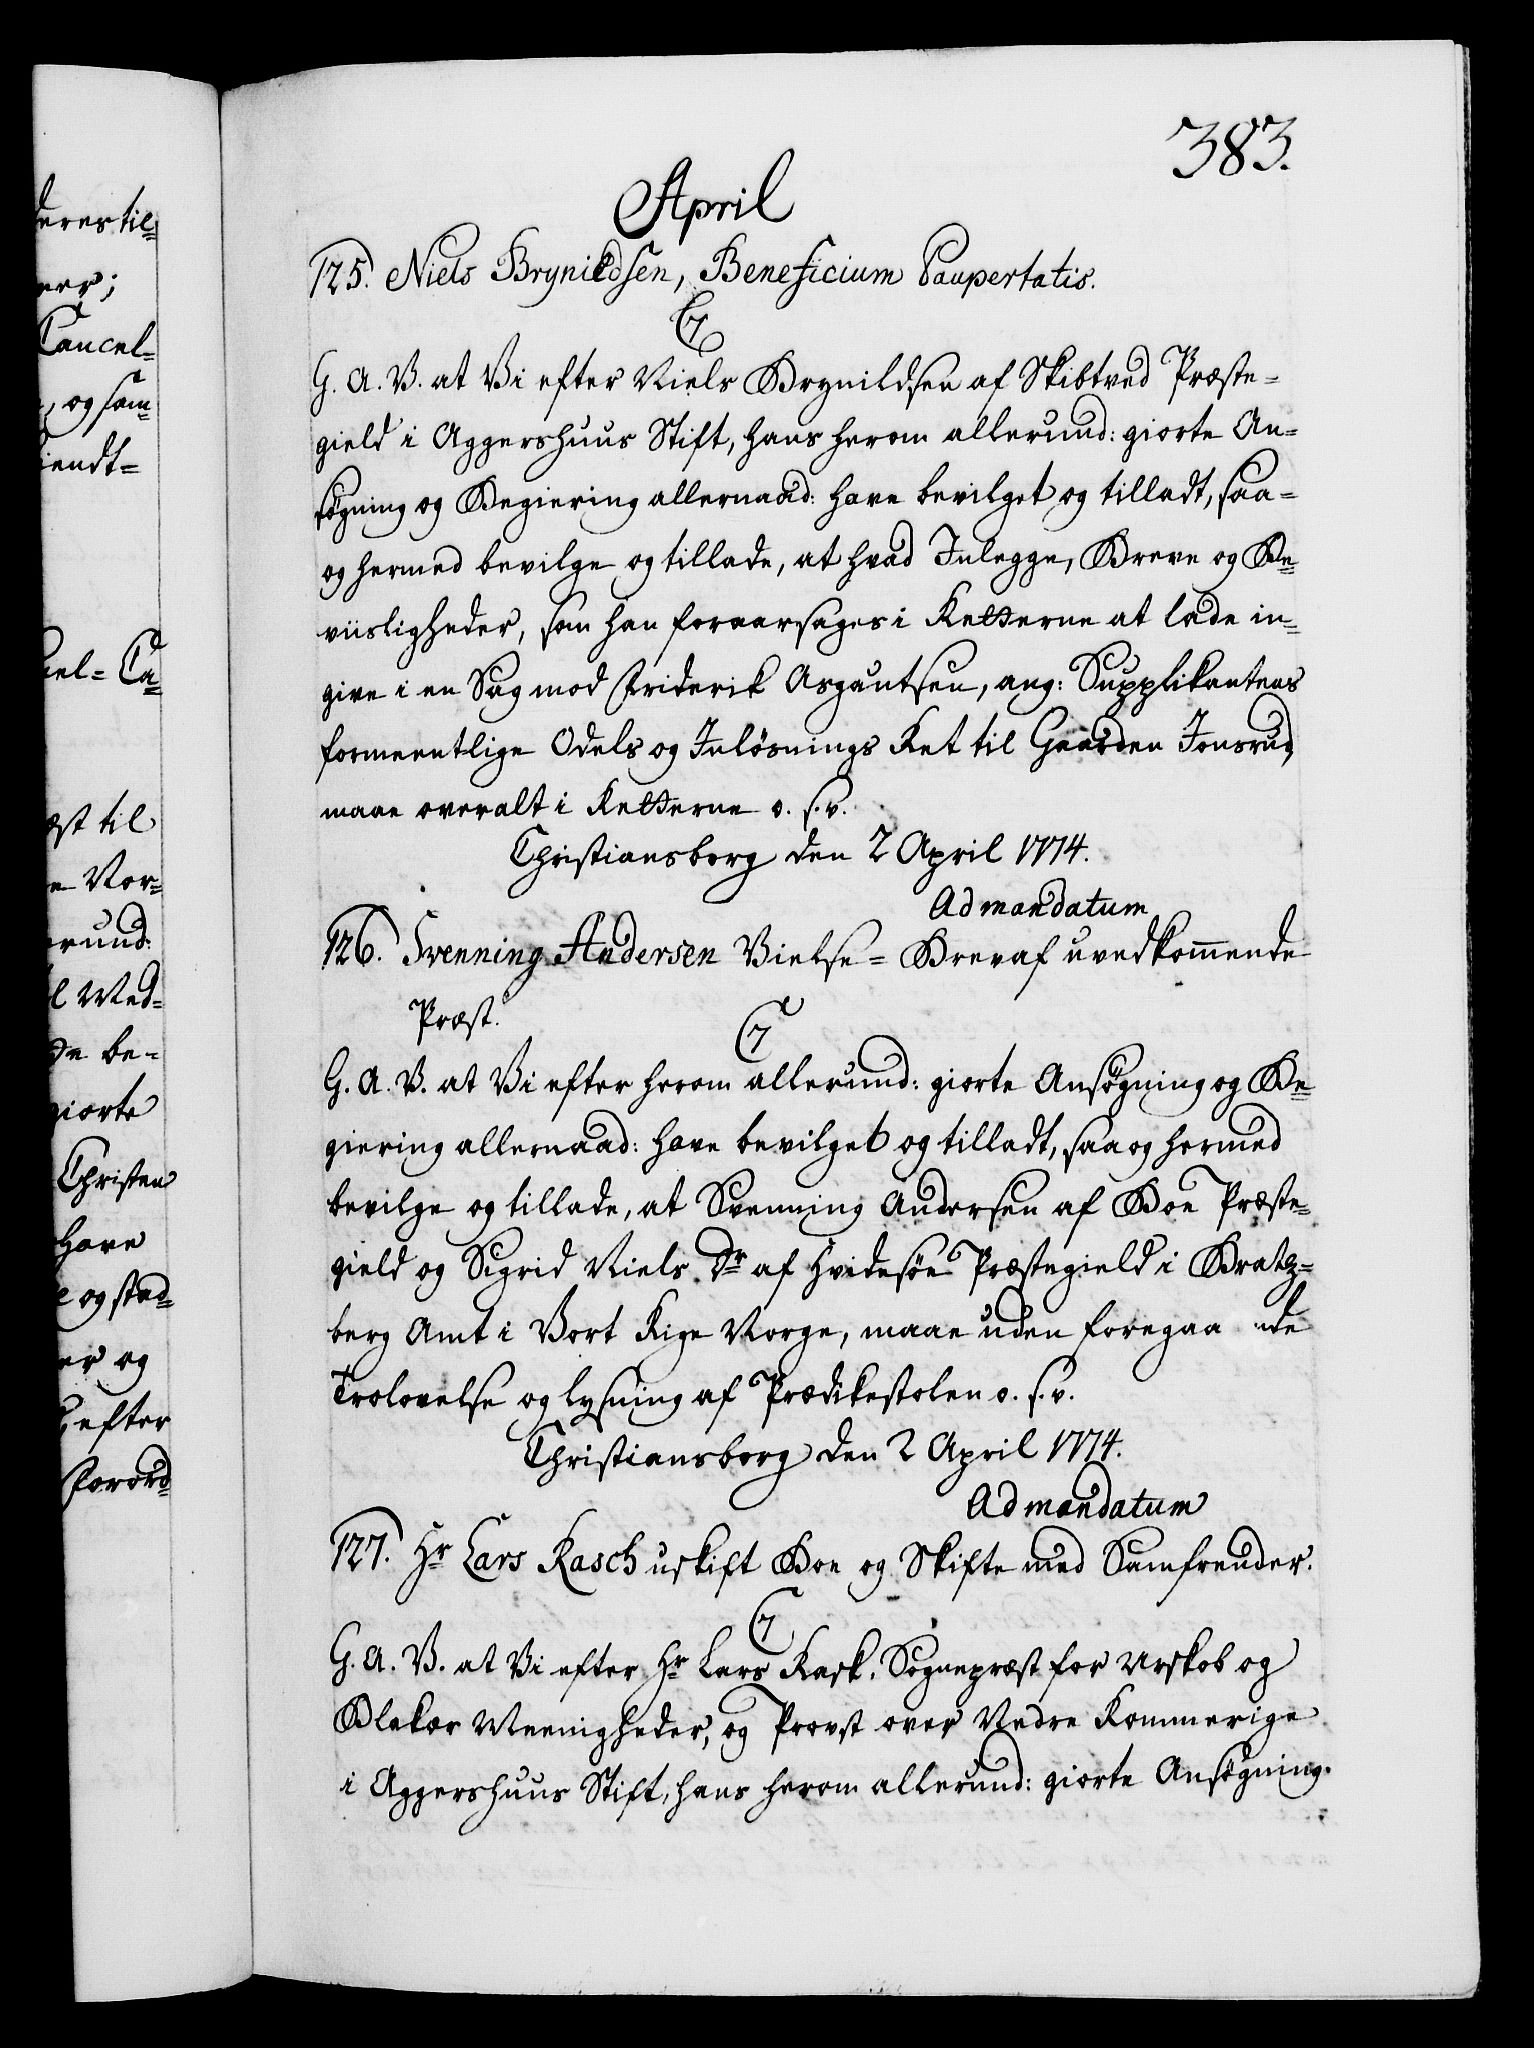 deres til=
ner;
Cancel-
, og sam=
iendt=
uel= Ca=
æst til
e Vor=
erund:
l Med=
de be-
giorte
Christen
have
e og stad=
er og
efter
Forord=
383.
April
125. Niels Brynildsen, Beneficium Paupertatis.
C7
G. A. V. at Vi efter Niels Brynildsen af Skibtved Præste=
gield i Aggershuus Stift, hans herom allerund: giorte An=
søgning og Begiering allernaad: have bevilget og tilladt, saa=
og hermed bevilge og tillade, at hvad Indlegge, Breve og Be=
viisligheder, som han foraarsages i Retterne at lade in=
give i en Sag mod Friderik Asgautsen, ang: Supplikantens
formeentlige Odels og Inløsnings Ret til Gaarden Jonsrud,
maae overalt i Retterne o. s. v.
Christiansborg den 2 April 1774.
Ad mandatum
126. Svenning Andersen Vielse= Brev af uvedkommende
Præst.
C7
G. A. V. at Vi efter herom allerund: giorte Ansøgning og Be=
giering allernaad: have bevilget og tilladt, saa og hermed
bevilge og tillade, at Svenning Andersen af Boe Præste=
gield og Sigrid Niels Dr af Hvidesøe Præstegield i Bratz=
berg Amt i Vort Rige Norge, maae uden foregaaende
Trolovelse og lysning af Prædikestolen o. s. v.
Christiansborg den 2 April 1774.
Ad mandatum
127. Hr Lars Rasch uskift Boe og Skifte med Samfrender.
C7
G. A. V. at Vi efter Hr Lars Rask, Sognepræst for Urskob og
Blakær Meenigheder, og Provst over Nedre Rommerige
i Aggershuus Stift, hans herom allerund: giorte Ansøgning